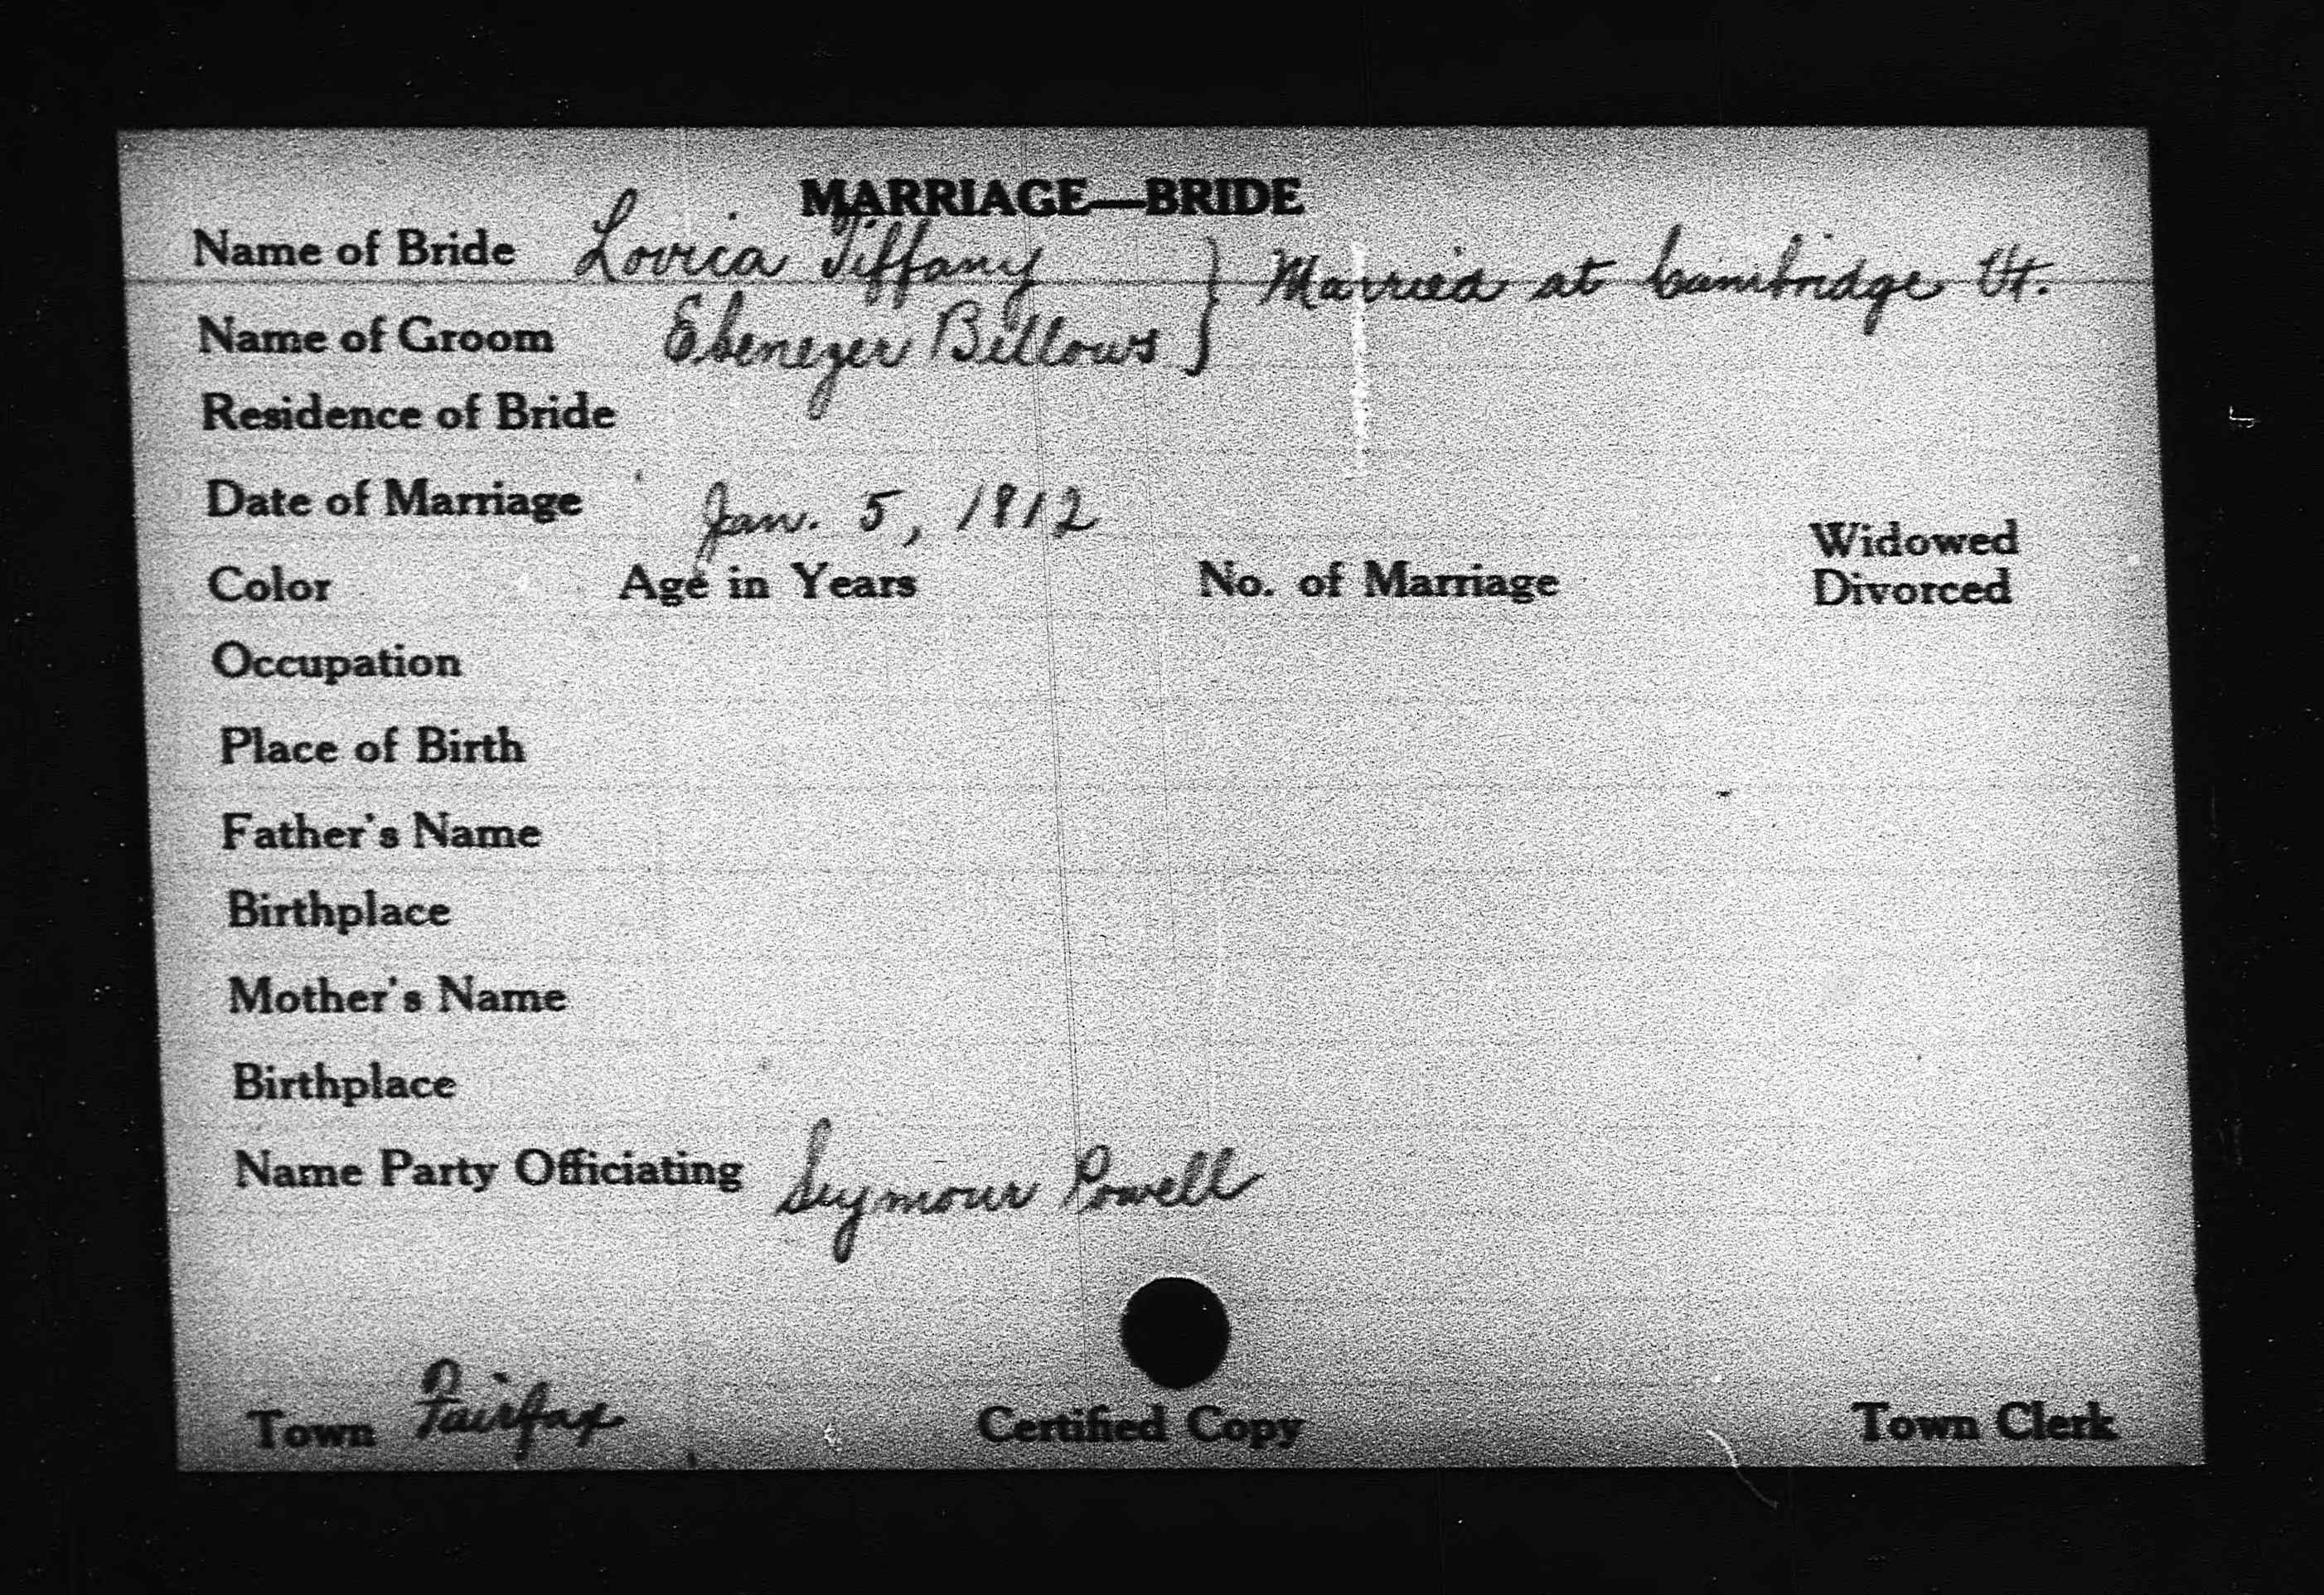 MARRIAGE—BRIDE
Name of Bride Lovica Tiffany } Married at Cambridge Vt.
Name of Groom Ebenezer Bellows
Residence of Bride
Date of Marriage Jan. 5, 1812
Widowed
Color Age in Years No. of Marriage Divorced
Occupation
Place of Birth
Father's Name
Birthplace
Mother's Name
Birthplace
Name Party Officiating Seymour Powell
Town Fairfax Certified Copy Town Clerk